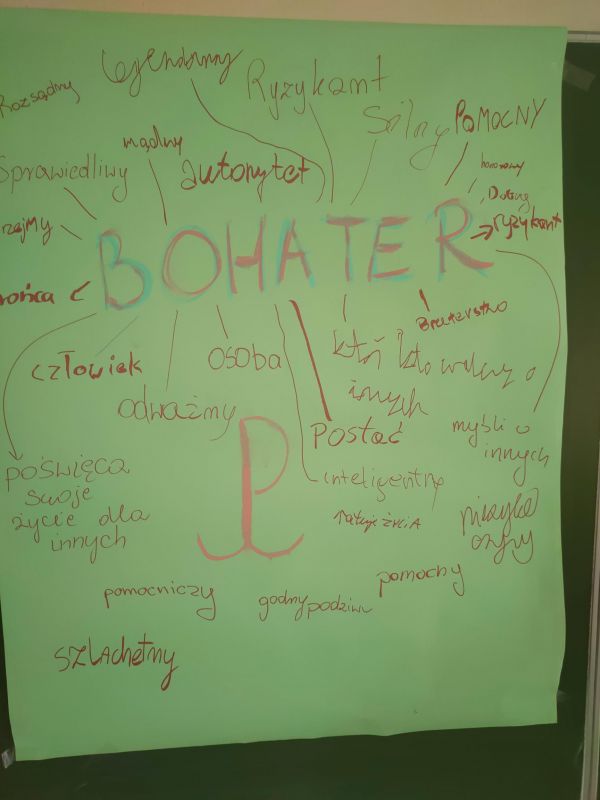 Legendarny
Ryzykant
Rozsądny
Silny
POMOCNY
mądry
Sprawiedliwy
autorytet
honorowy
Dobry
ryzykant
BOHATER
Braterstwo
człowiek
osoba
ktoś kto walczy o
innych
odważny
Postać
myśli o
innych
poświęca
swoje
życie dla
innych
inteligentny
ratuje życiA
pomocniczy
godny podziwu
pomocny
SZLAchetny